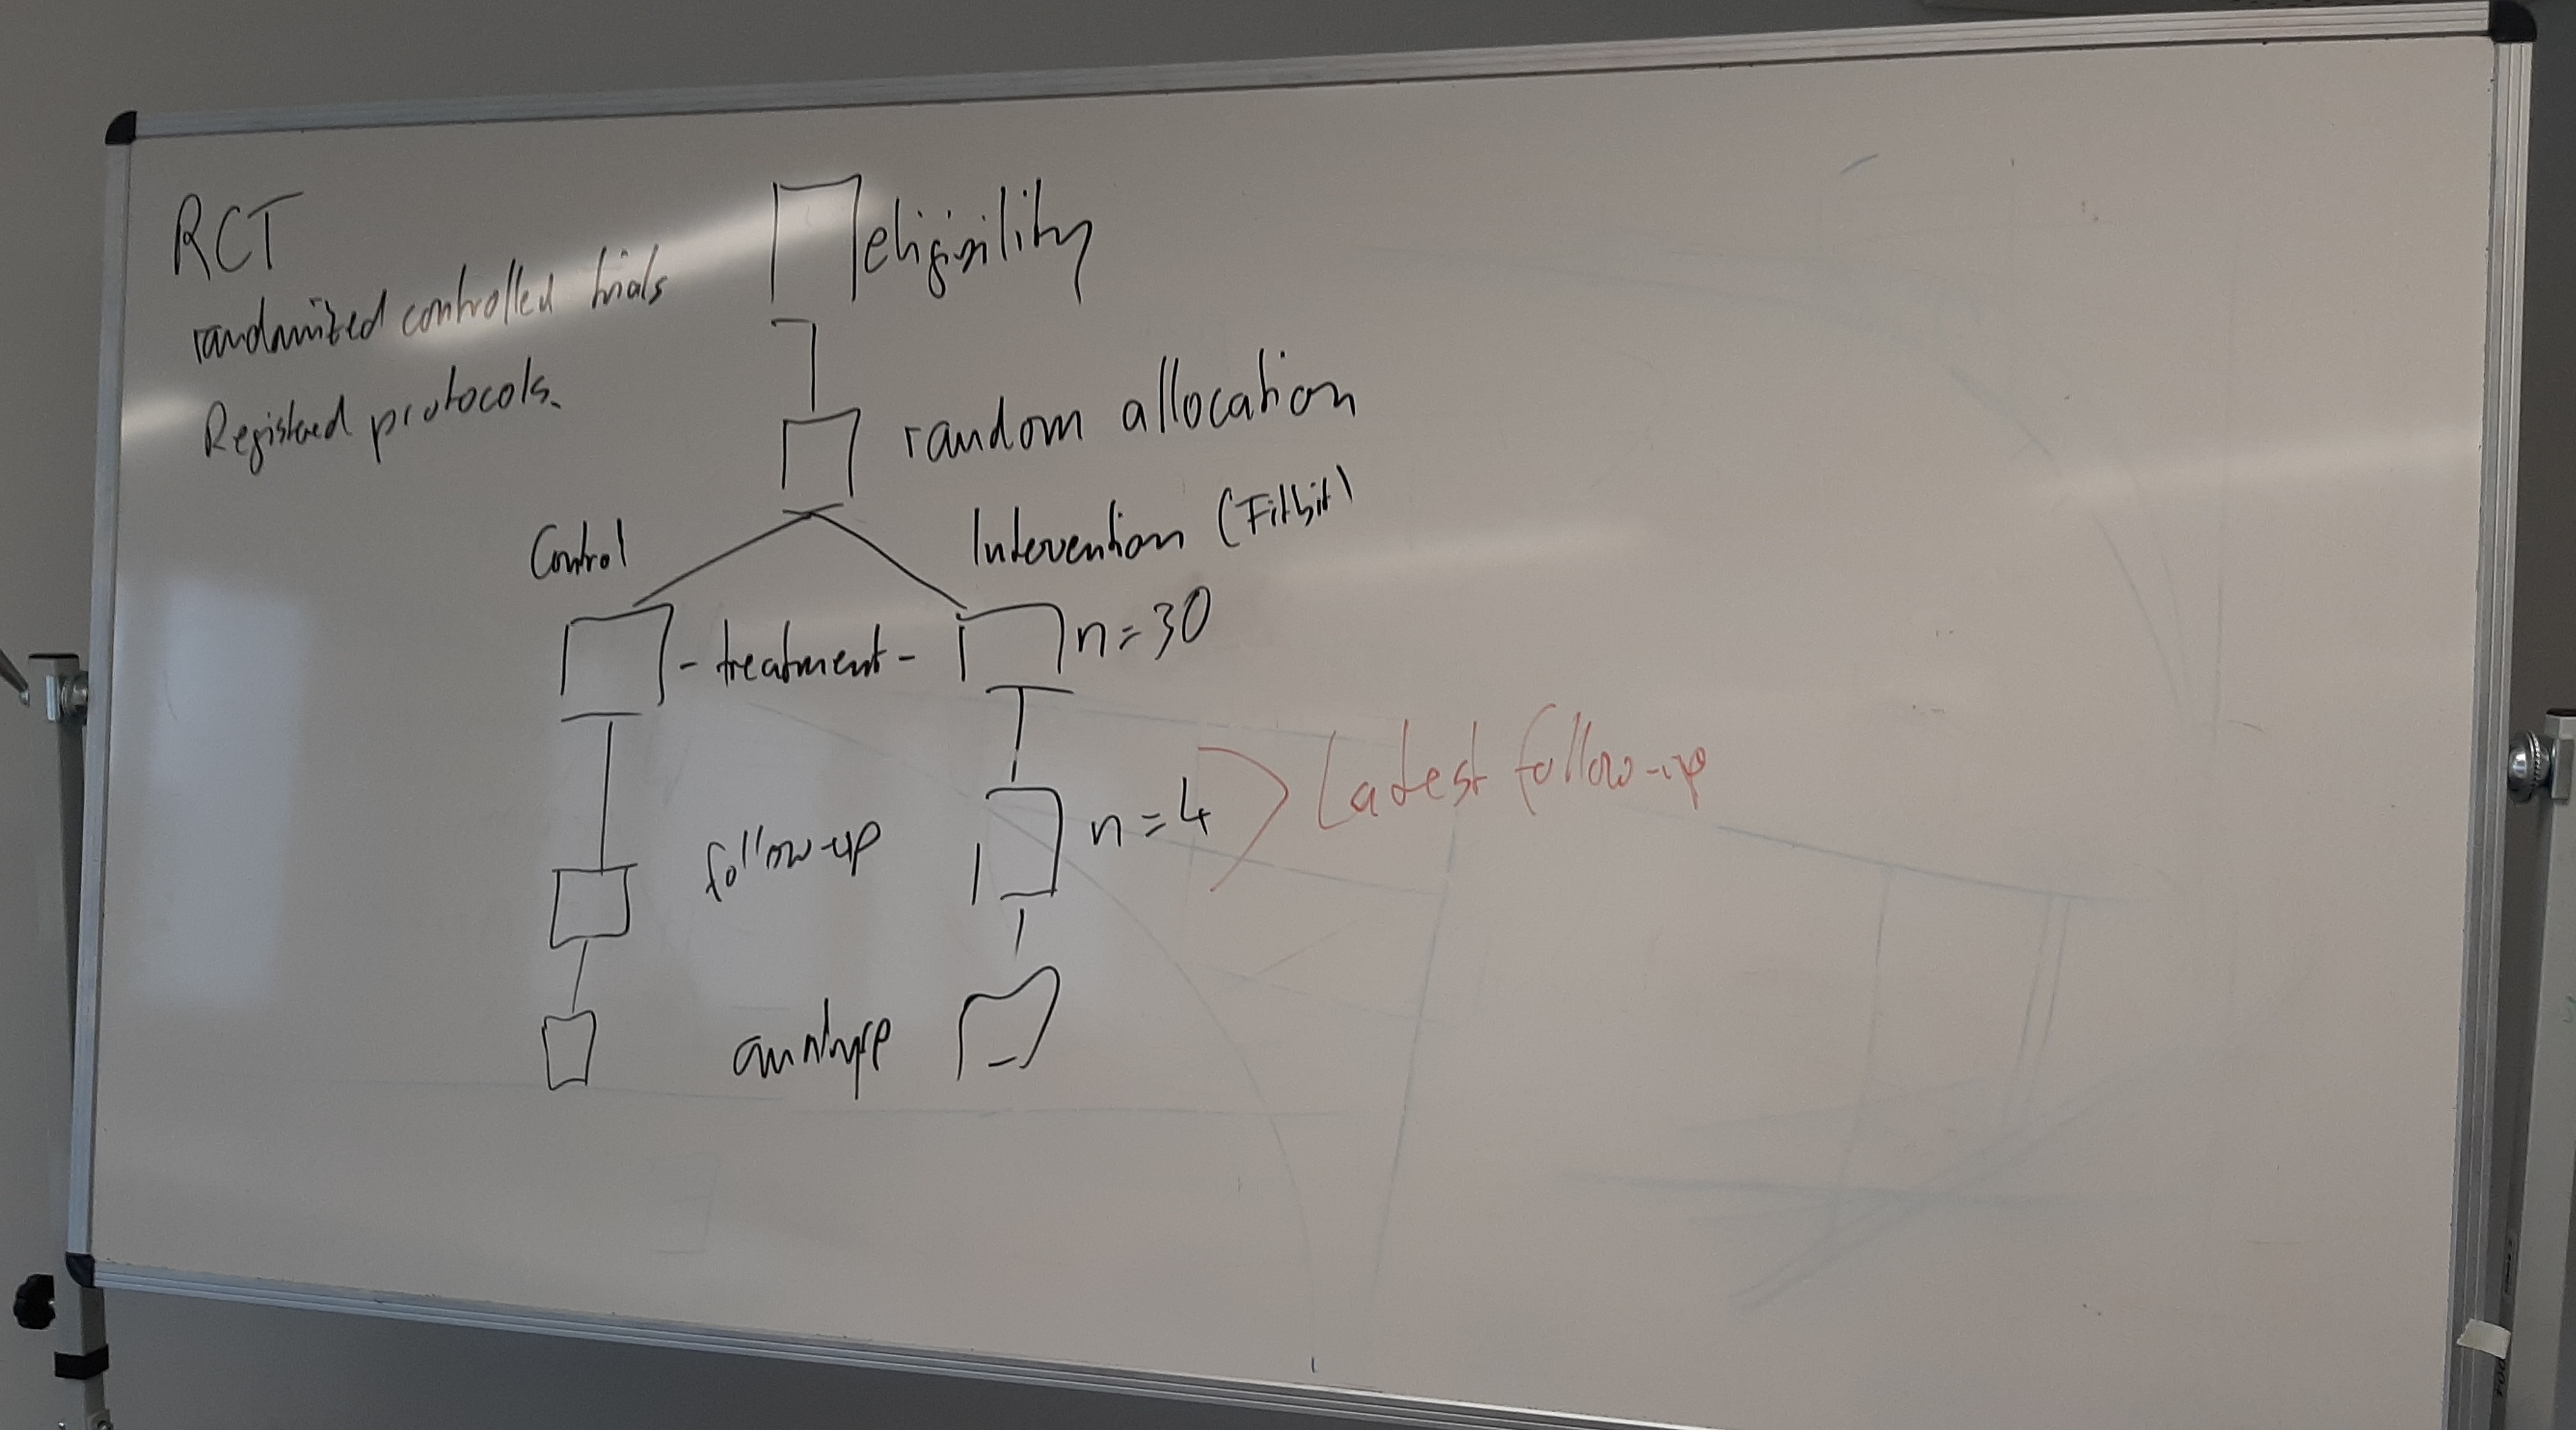 RCT
randomized controlled trials
Registered protocols.
eligibility
random allocation
Control
Intervention (Fitbit)
- treatment -
n=30
follow-up
n=4
Latest follow-up